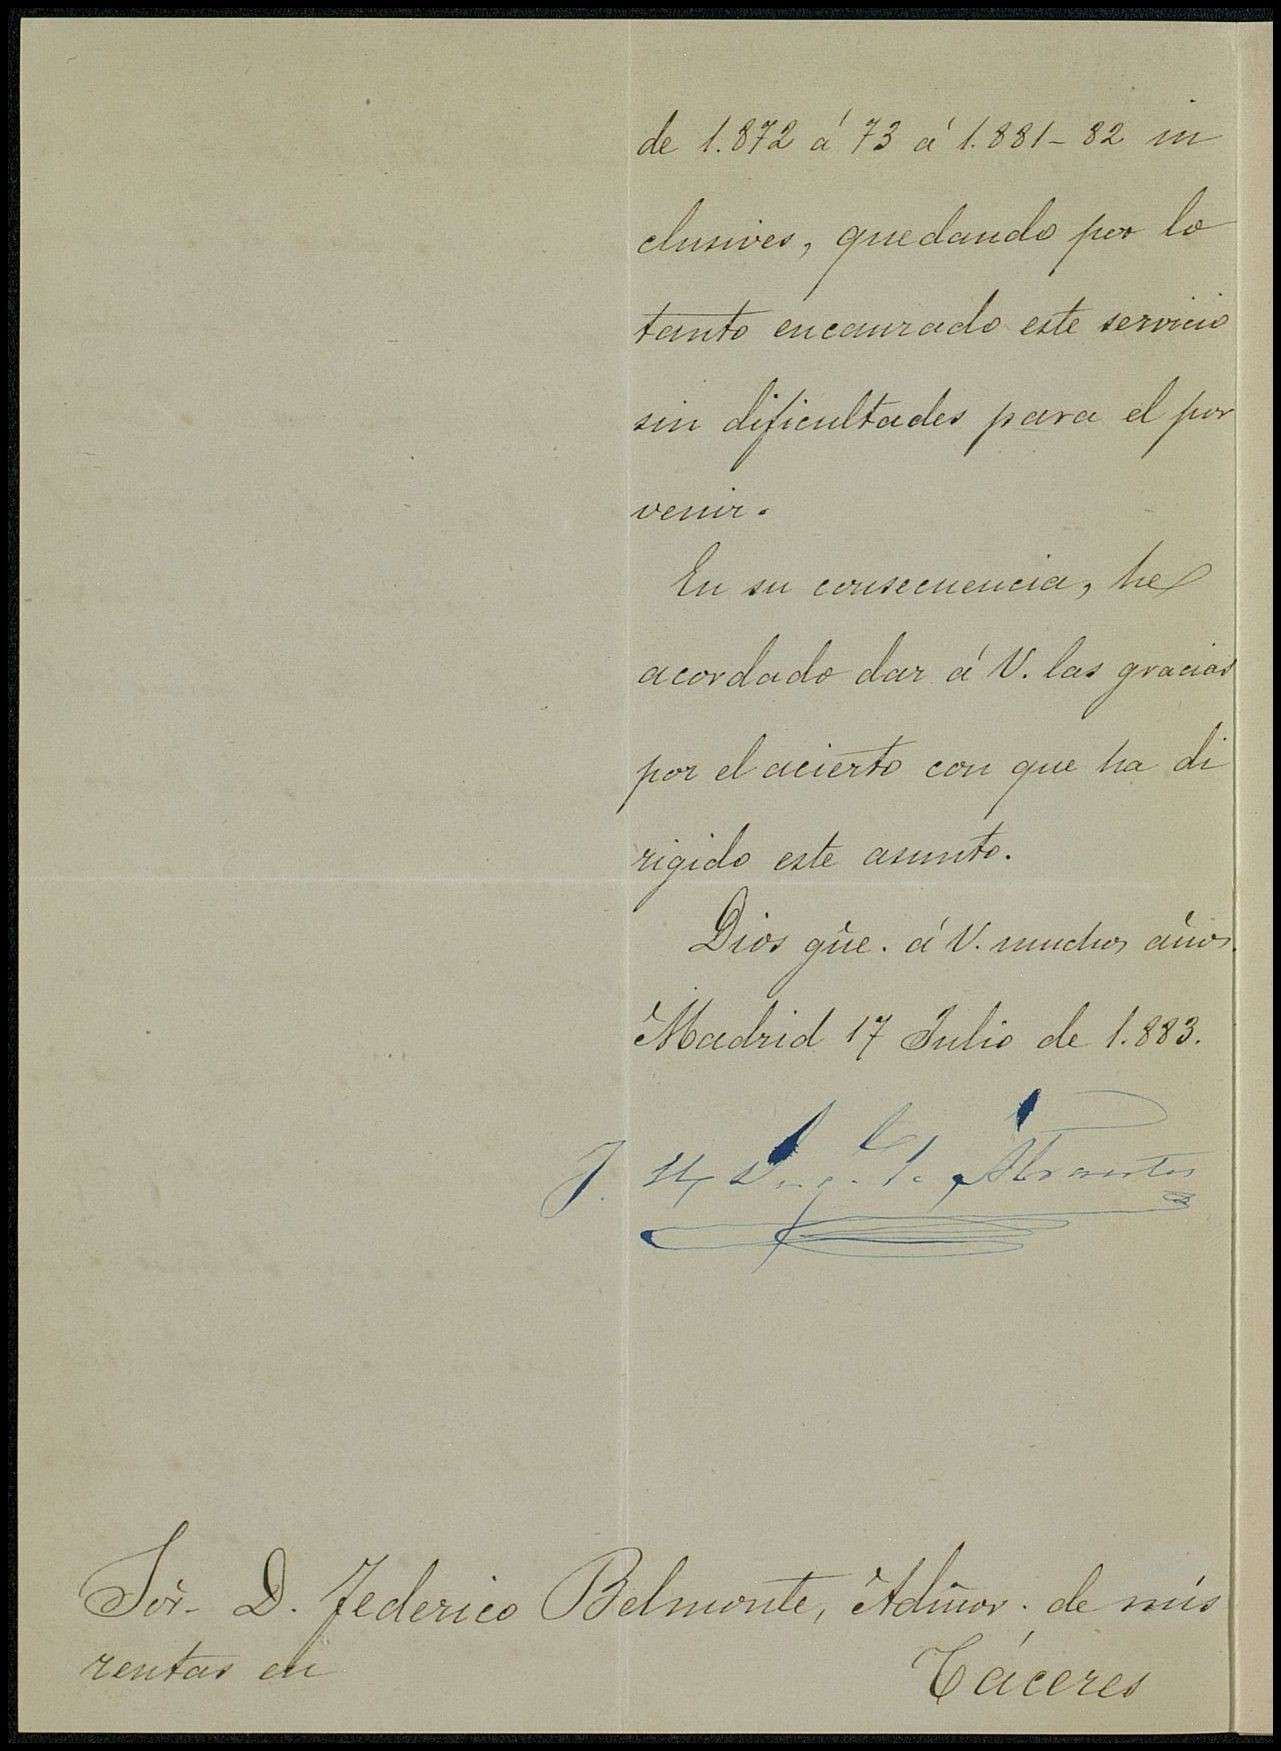 de 1.872 á 73 á 1.881-82 in
clusives, quedando por lo
tanto encaurado este servicio
sin dificultades para el por
venir.
En su consecuencia, he
acordado dar á V. las gracias
por el acierto con que ha di
rigido este asunto.
Dios güe. á V. muchos años.
Madrid 17 Julio de 1.883.
J. El Duque de Abrantes
Sor. D. Federico Belmonte, Admor. de mis
rentas en Cáceres